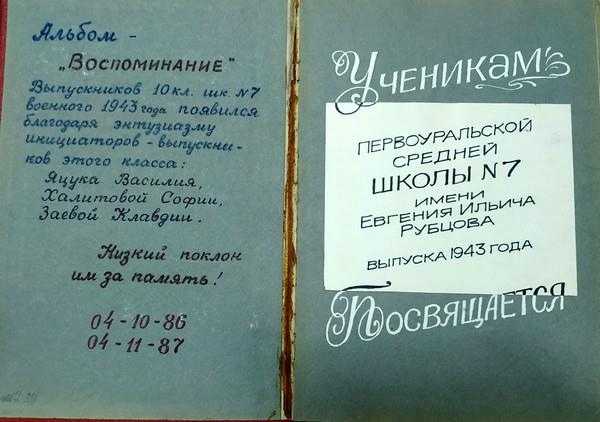 Альбом -
„Воспоминание"
Выпускников 10 кл. шк. №7
военного 1943 года появился
благодаря энтузиазму
инициаторов - выпускни-
ков этого класса:
Яцука Василия,
Халитовой Софии,
Заевой Клавдии.
Низкий поклон
им за память!
04-10-86
04-11-87
Ученикам
Первоуральской
средней
школы №7
имени
Евгения Ильича
Рубцова
выпуска 1943 года
Посвящается